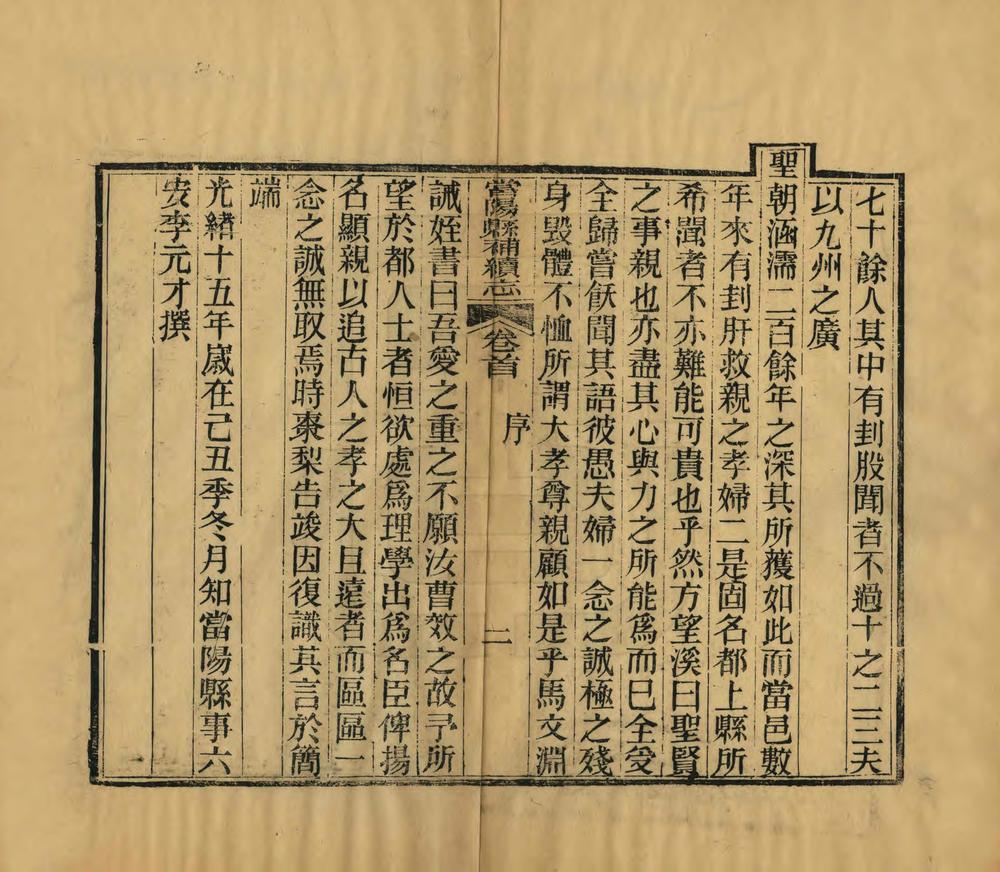 七十餘人其中有刲股聞者不過十之二三夫
以九州之廣
聖朝涵濡二百餘年之深其所獲如此而當邑數
年來有刲肝救親之孝婦二是固名都上縣所
希聞者不亦難能可貴也乎然方望溪曰聖賢
之事親也亦盡其心與力之所能爲而已全受
全歸嘗飫聞其語彼愚夫婦一念之誠極之殘
身毀體不恤所謂大孝尊親顧如是乎馬文淵
當陽縣補續志 卷首 序 二
誡姪書曰吾愛之重之不願汝曹效之故予所
望於都人士者恒欲處爲理學出爲名臣俾揚
名顯親以追古人之孝之大且遠者而區區一
念之誠無取焉時棗梨告竣因復識其言於簡
端
光緒十五年歲在己丑季冬月知當陽縣事六
安李元才撰